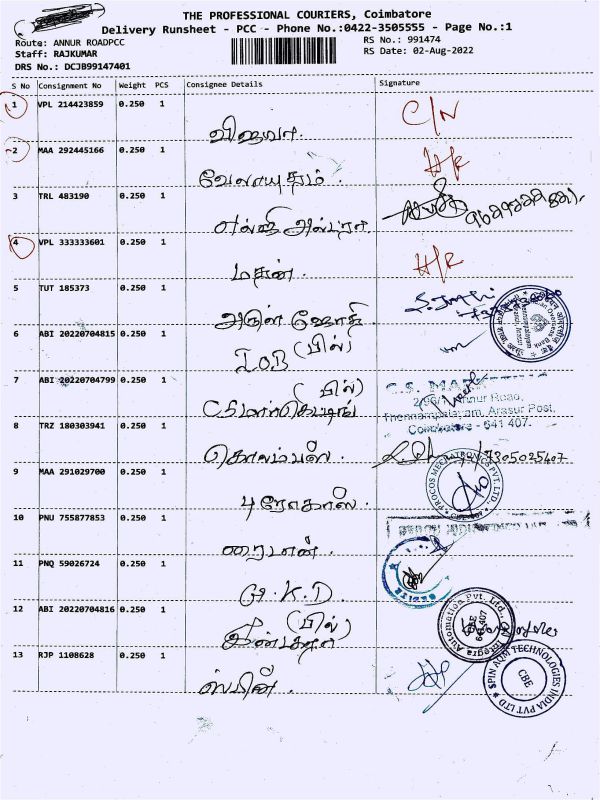 THE PROFESSIONAL COURIERS, Coimbatore
Delivery Runsheet - PCC - Phone No.:0422-3505555 - Page No.:1
Route: ANNUR ROADPCC
RS No.: 991474
Staff: RAJKUMAR
RS Date: 02-Aug-2022
DRS No.: DCJB99147401
S No Consignment No Weight PCS Consignee Details Signature
1 VPL 214423859 0.250 1 C/N
விஜயா.
2 MAA 292445166 0.250 1 H/R
வேலாயுதம்.
3 TRL 483190 0.250 1
எல்ஜி அல்ட்ரா.
4 VPL 333333601 0.250 1 H/R
மதன்.
5 TUT 185373 0.250 1
அருள் ஜோதி
6 ABI 20220704815 0.250 1
IOB (பில்)
7 ABI 20220704799 0.250 1
(பில்)
CS மார்கெட்டிங்
C.S. MARKETING
Annur Road,
Thennampalayam, Arasur Post,
Coimbatore - 641 407.
8 TRZ 180303941 0.250 1
7305025407
9 MAA 291029700 0.250 1
PROCOS MECHATRONICS PVT. LTD.
புரோகாஸ்.
10 PNU 755877853 0.250 1
11 PNQ 59026724 0.250 1
G.K.D.
12 ABI 20220704816 0.250 1
(பில்)
Integra Automation Pvt. Ltd.,
CBE
641 407
13 RJP 1108628 0.250 1
ஸ்பின்.
SPIN AQM TECHNOLOGIES INDIA PVT LTD
CBE